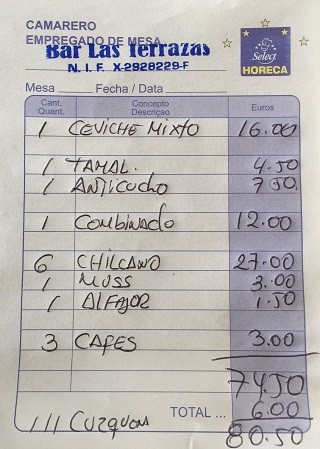 CAMARERO
EMPREGADO DE MESA
Bar Las Terrazas
N. I. F. X-2928229-F
Select
HORECA
Mesa Fecha / Data
Cant. Quant. Concepto Descriçao Euros
1 CEVICHE MIXTO 16.00
1 TAMAL. 4.50
1 ANTICUCHO 7.50
1 COMBINADO 12.00
6 CHILCANO 27.00
1 MUSS 3.00
1 ALFAJOR 1.50
3 CAFES 3.00
74.50
TOTAL ... 6.00
111 CUZQUEÑA 80.50